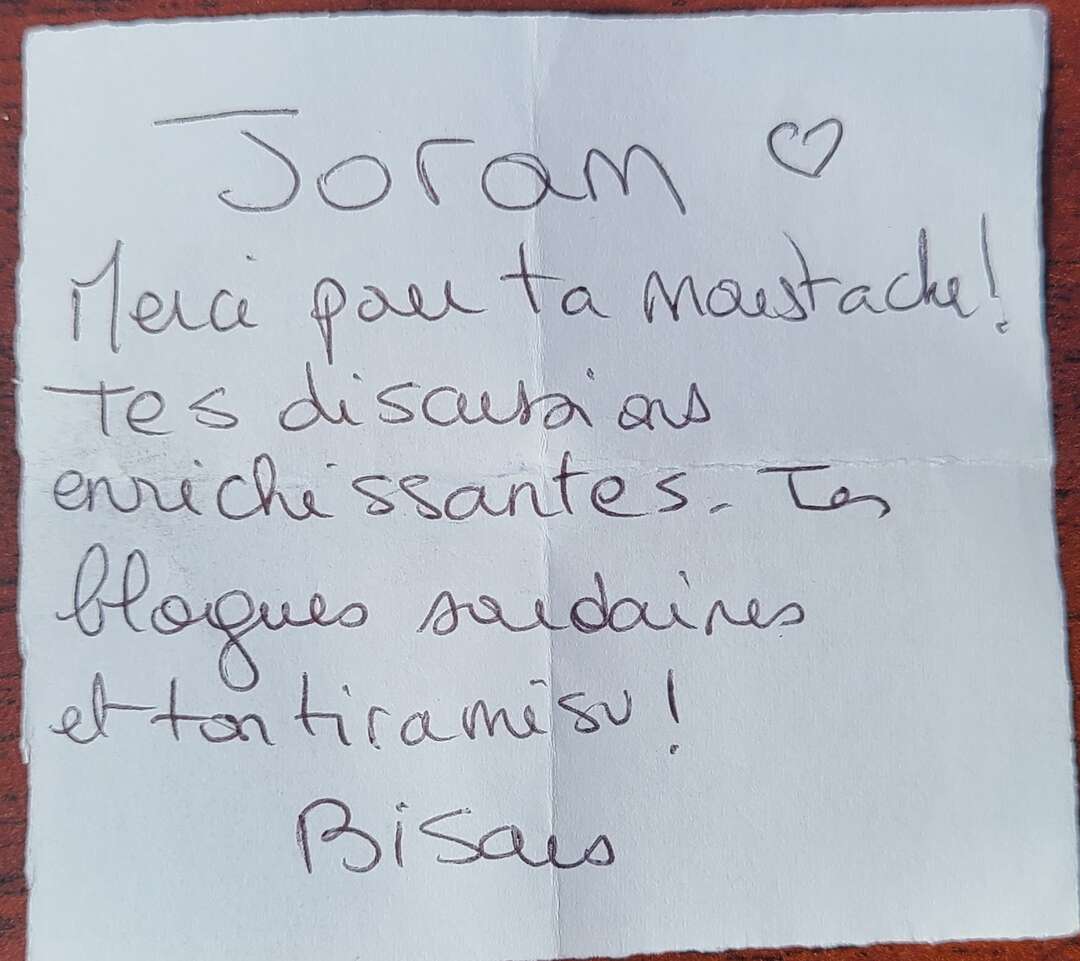 Joram ♡
Merci pour ta moustache!
Tes discussions
enrichissantes. Tes
blagues soudaines
et ton tiramisu!
Bisous